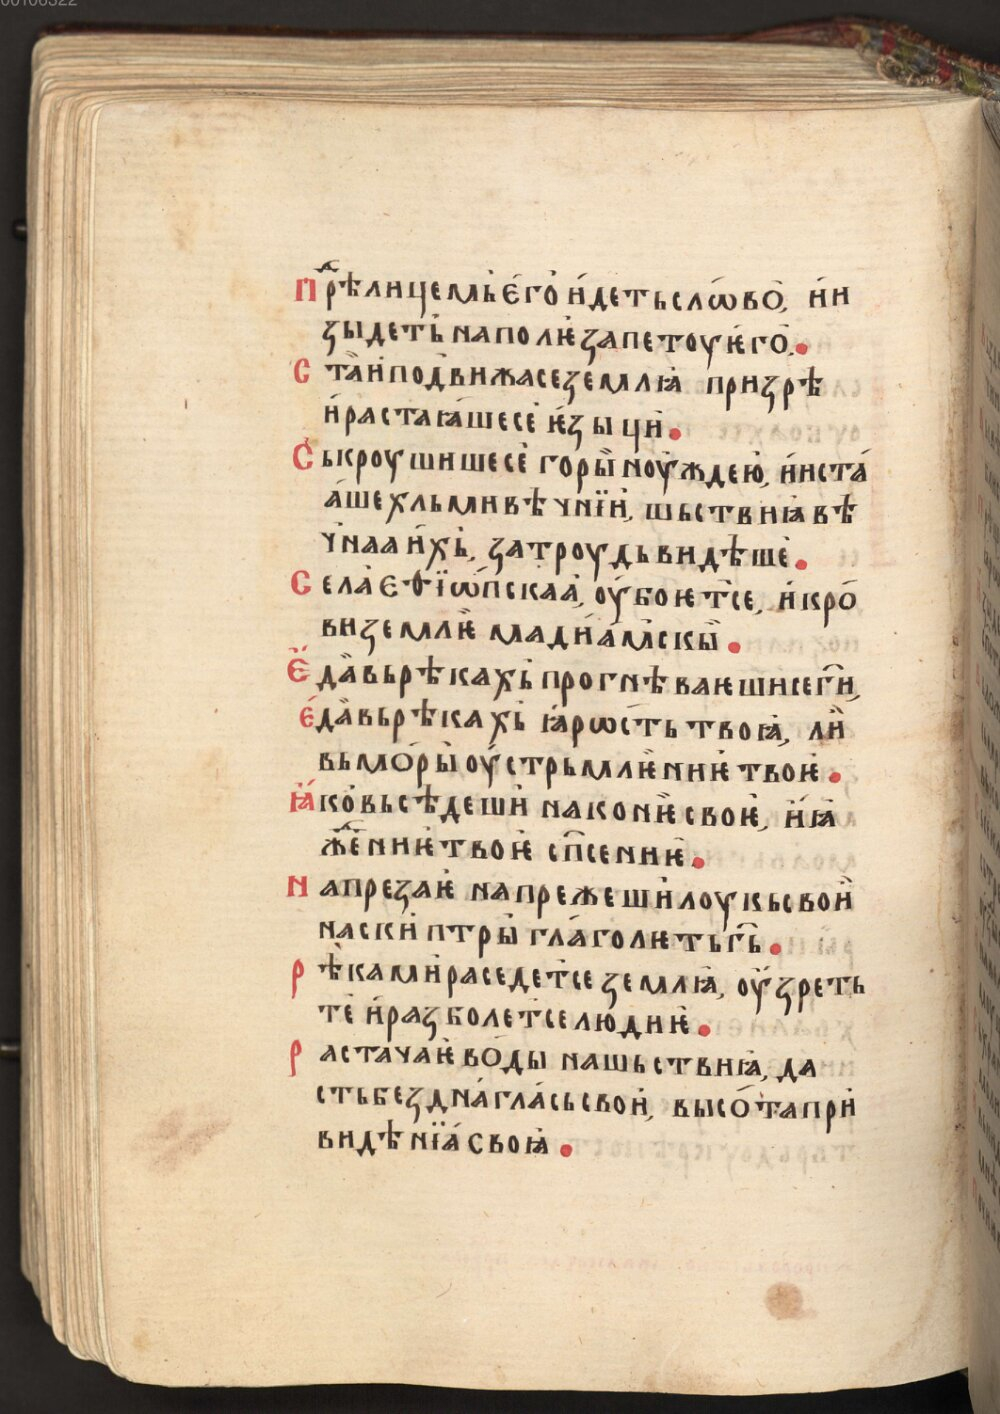 00108322
Прⷣѣлицемь є҆го̀ и҆детьсло́во̀, и҆и
зыдеть̀ наполꙗ҄ запетоуѥ҆го̀.
Ста̀и҆подвижасеземлꙗ̀ призрѣ
и҆растаꙗ́шесе ѥ҆зыци.
Ськроушишесѐ горы̀ ноу́ждею, и҆иста́
а́шехльмивѣчнїи, шьствиꙗвѣ
ч́наа и҆хь, затроудьвидѣше.
Села̀ є҆ѳїѡ́пскаа, оу҆боѥт̑се, и҆кро́
виземлѥ̀ мадиа́мскы̀.
Е҆да̀вьрѣкахь̀ прогнѣваѥшисегⷭ҇и,
є҆да̀вьрѣкахь̀ ꙗ҆рѡсть твоꙗ, лѝ
вьмо́ры̀ оу҆стрьмлѥниѥ твоѥ.
Ꙗ҆ко̀вьсѣдеши наконѥ̀ своѥ, и҆ꙗ
жⷣениѥтвоѥ сп҃сениѥ.
Напрезаѥ напрежешилоукьсвои
наскиптры̀ глаголѥтьгⷭ҇ь.
Рѣками҆раседет̑се землꙗ, оу҆зреть
тѐ и҆разболет̑селюдиѥ.
Растачаѥ во́ды нашьствиꙗ, да
стьбездна́гла́сьсвои, высо́тапри
видѣнїа́своꙗ.